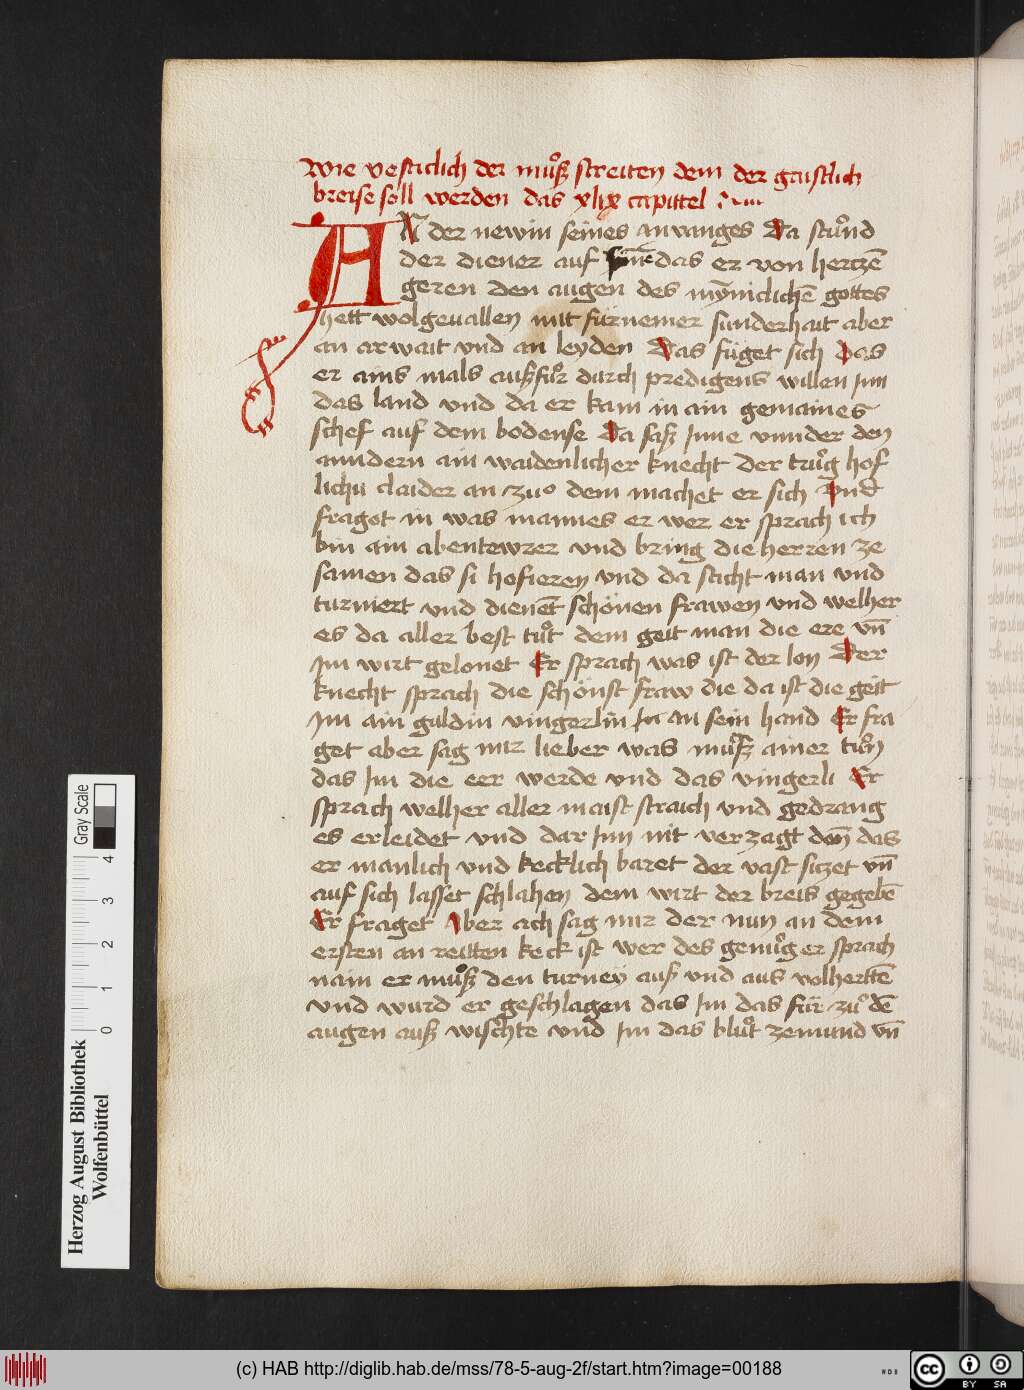 Wie vesticlich der muͦß streiten dem der gaistlich
breise soll werden das xlix capittel
AN der newin seines anvanges Da stuͦnd
der diener auf das er von hertzē
geren den augen des mynniclichē gottes
hett wolgeuallen mit furnemer sunderhait aber
an arwait vnd an leyden Das fuget sich das
er ains mals außfuͦr durch predigens willen Jnn
das land vnd da er kam in ain gemaines
schef auf dem bodense Da saß Jnne vnnder den
anndern ain waidenlicher knecht der truͦg hof
lichü claider an zuͦ dem machet er sich Vnd
fraget in was mannes er wer er sprach ich
bin ain abentewrer vnd bring die herren ze
samen das si hofieren vnd da sticht man vnd
turniert vnd dienet schönen frawen vnd welher
es da aller best tuͦt dem geit man die ere vn̄
Jm wirt gelonet Er sprach was ist der lon Der
knecht sprach die schönst fraw die da ist die geit
Jm ain guldin vingerlin an sein hand Er fra
get aber sag mir lieber was muͦß ainer tuͦn
das Jm die eer werde vnd das vingerli Er
sprach welher aller maist straich vnd gedrang
es erleidet vnd dar Jnn nit verzagt den̄ das
er manlich vnd kecklich baret der vast siczet vn̄
auf sich lasset schlahen dem wirt der breis gegebē
Er fraget Aber ach sag mir der nun an dem
ersten an reitten keck ist wer des genuͦg er sprach
nain er muͦß den turney auß vnd aus volhertē
vnd wurd er geschlagen das Jm das für zuͦ dē
augen auß wischte vnd Jm das bluͦt zemund vn̄
Gray Scale
4
3
2
1
0
Herzog August Bibliothek
Wolfenbüttel
(c) HAB http://diglib.hab.de/mss/78-5-aug-2f/start.htm?image=00188
WDB
cc
BY SA